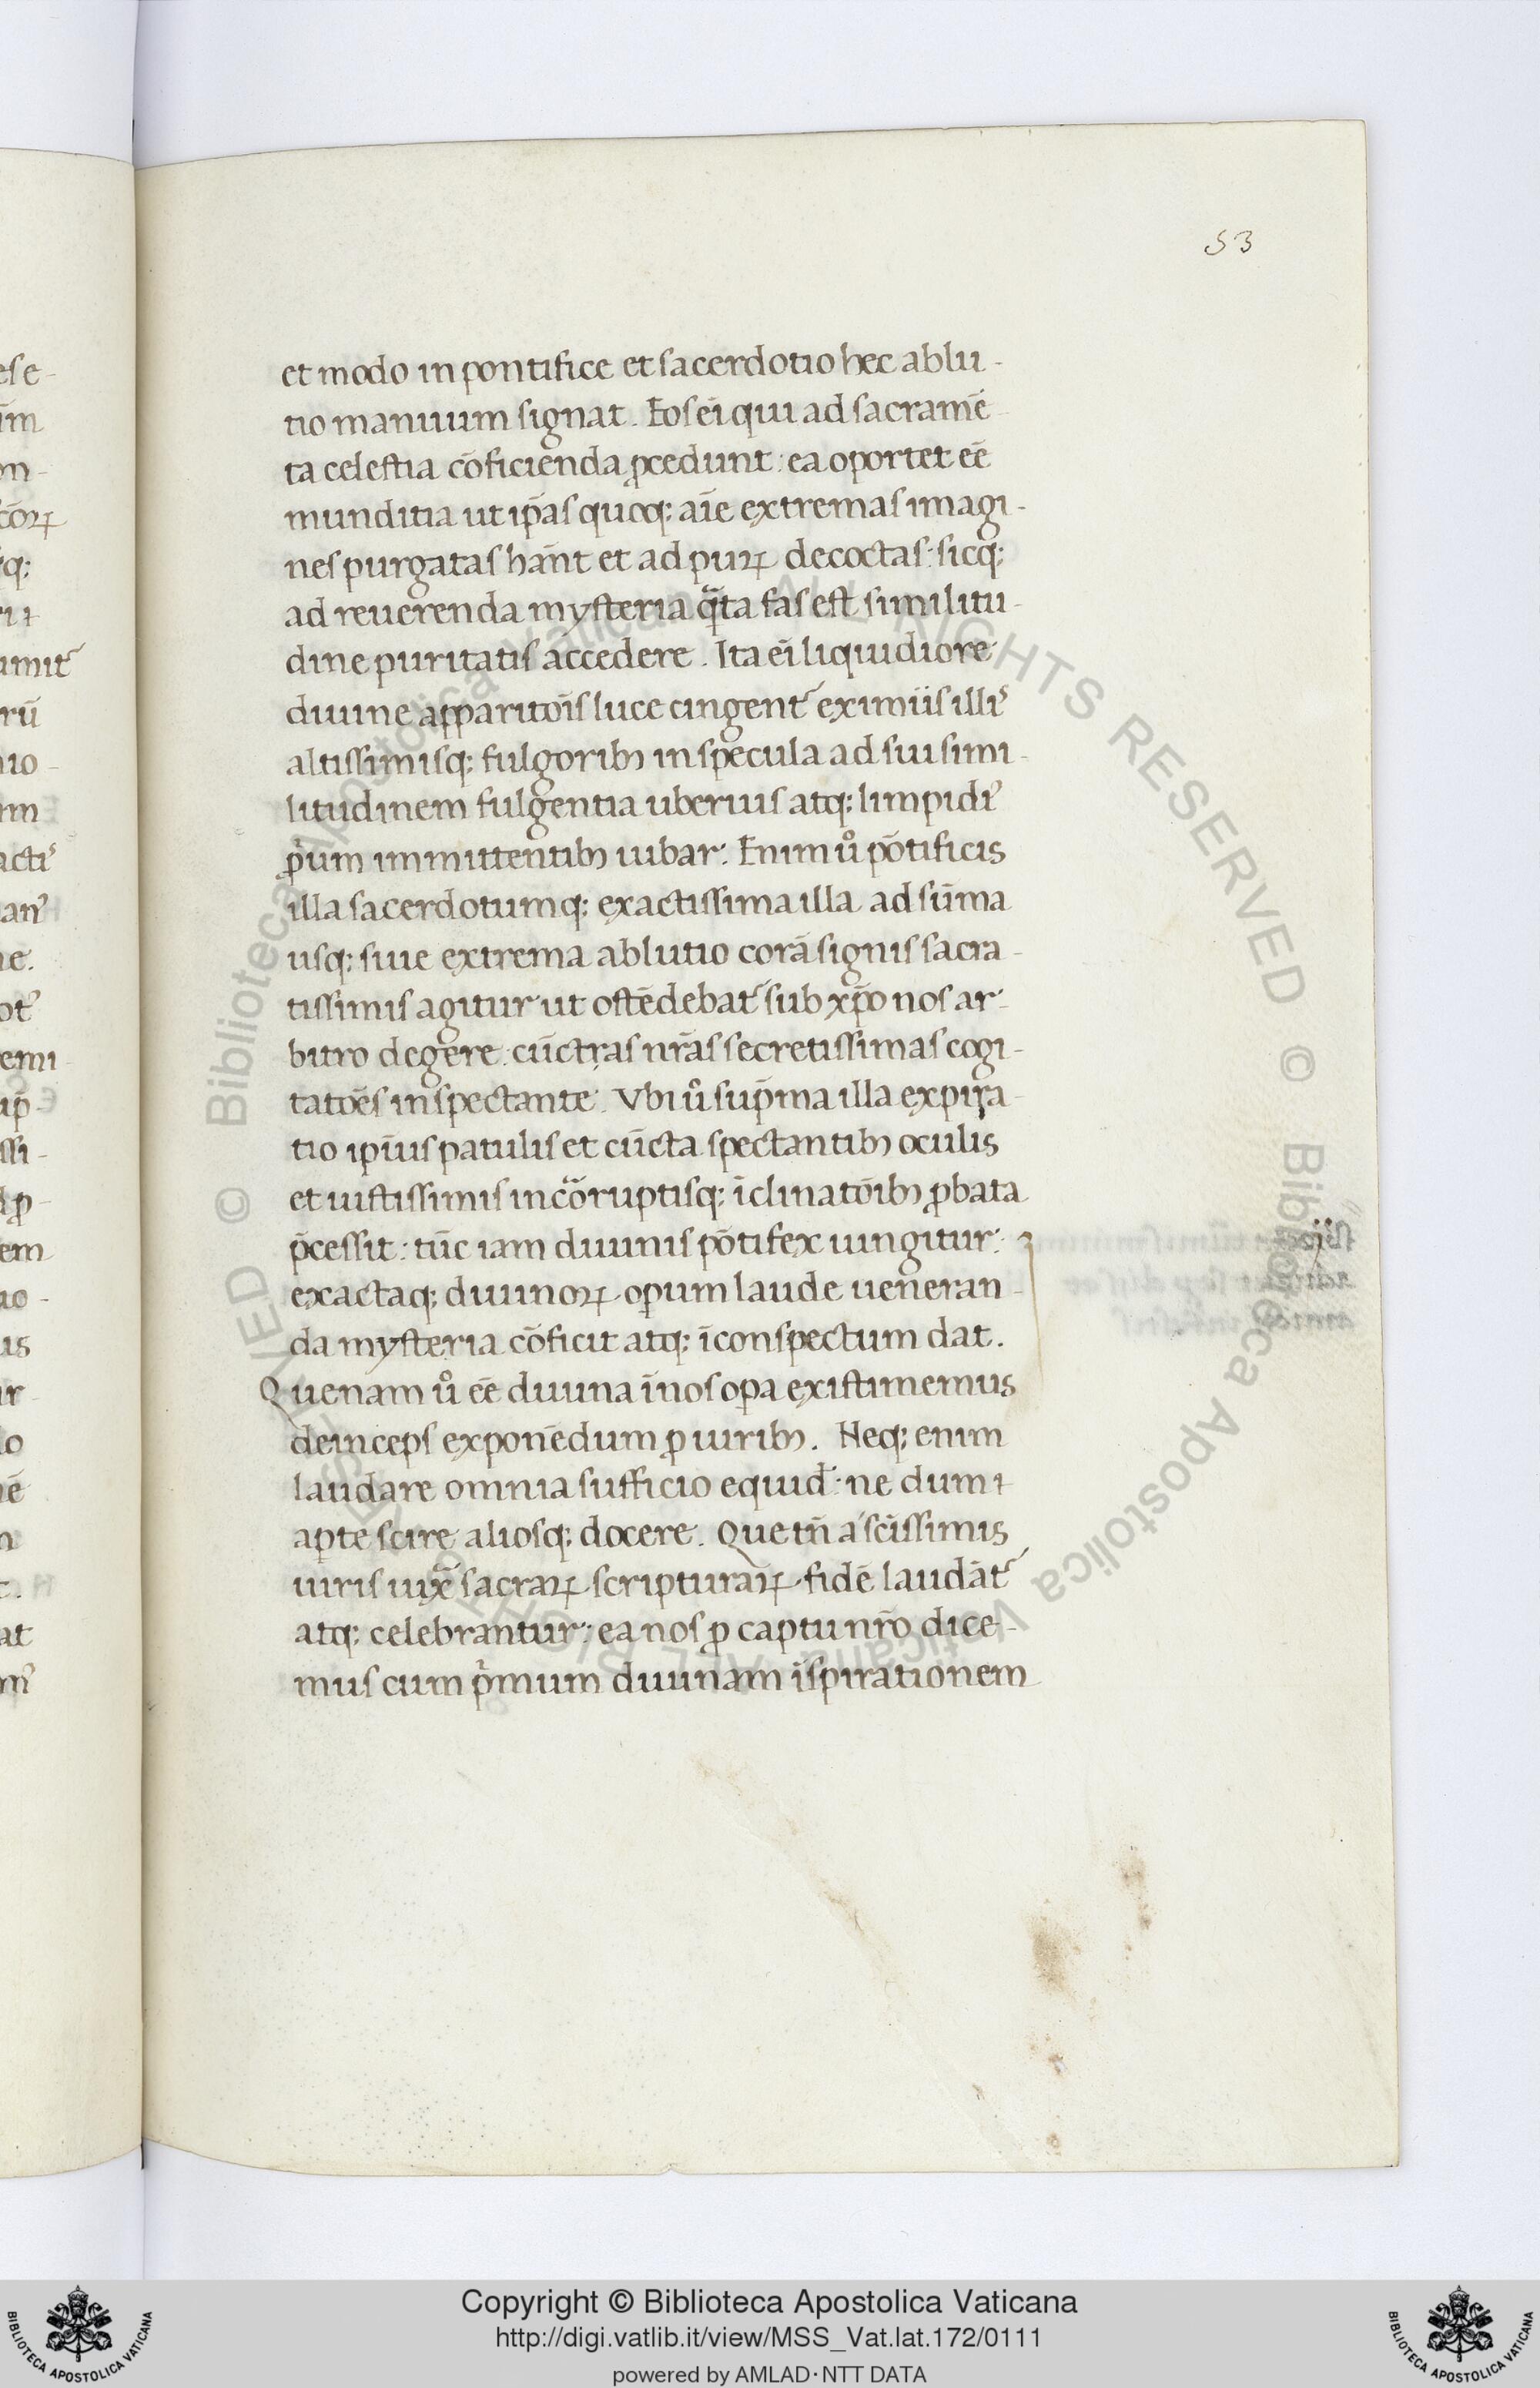 53
et modo in pontifice et sacerdotio hec ablu-
tio manuum signat. Eos ei̅ qui ad sacrame̅
ta celestia co̅ficienda ꝓcedunt: ea oportet ee̅
munditia ut ip̅as quoq; ai̅e extremas imagi-
nes purgatas ha̅nt et ad puꝝ decoctas: sicq;
ad reuerenda mysteria q̅ta fas est similitu-
dine puritatis accedere. Ita ei̅ liquidiore
diuine apparito̅is luce cingent᷑ eximiis illiꝰ
altissimisq; fulgoribꝫ in specula ad sui simi-
litudinem fulgentia uberius atq; limpidiꝰ
ꝓ̍ium immittentibꝫ iubar. Enim ů po̅tificis
illa sacerdotumq; exactissima illa ad su̅ma
usq; siue extrema ablutio cora̅ signis sacra-
tissimis agitur ut oste̅debat᷑ sub xp̅o nos ar-
bitro degere: cu̅ctas nr̅as secretissimas cogi-
tato̅es inspectante. Vbi ů sup̅ma illa expira-
tio ipi̅us patulis et cu̅cta spectantibꝫ oculis
et iustissimis incorruptisq; i̅clinato̅ibꝫ ꝓbata
p̅cessit: tu̅c iam diuinis po̅tifex iungitur:
exactaq; diuinoꝝ oꝑum laude ueneran-
da mysteria co̅ficit atq; i̅ conspectum dat.
Quenam ů ee̅ diuina i̅ nos oꝑa existimemus
deinceps expone̅dum ꝓ uiribꝫ. Neq; enim
laudare omnia sufficio equid̅: ne dum ⁊
aꝑte scire aliosq; docere. Que tn̅ a sc̅issimis
uiris iuxͣ sacraꝝ scripturaꝝ fide̅ lauda̅t᷑
atq; celebrantur: ea nos ꝓ captu nr̅o dice-
mus cum p̍mum diuinam i̅spirationem
Copyright © Biblioteca Apostolica Vaticana
http://digi.vatlib.it/view/MSS_Vat.lat.172/0111
powered by AMLAD·NTT DATA